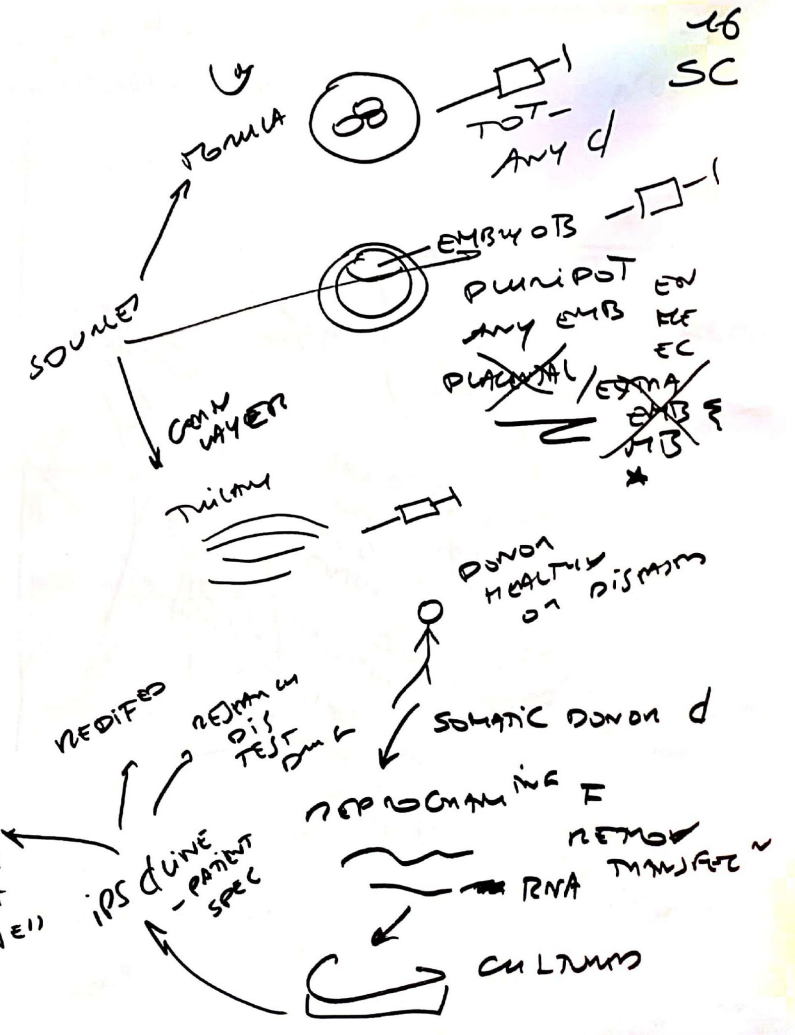 16
SC
MORULA
TOT-
ANY d
SOURCES
EMBRYOB
PLURIPOT
ANY EMB
EN
ME
EC
PLACENTAL / EXTRA
EMB
MB
GERM
LAYER
TRILAM
DONOR
HEALTHY
OR DISEASED
SOMATIC DONOR d
REPROGRAMING F
REMOV
TRANSFER
RNA
CULTURED
iPS d LINE
- PATIENT
SPEC
REDIFED
RESEARCH
DIS
TEST
DRUG